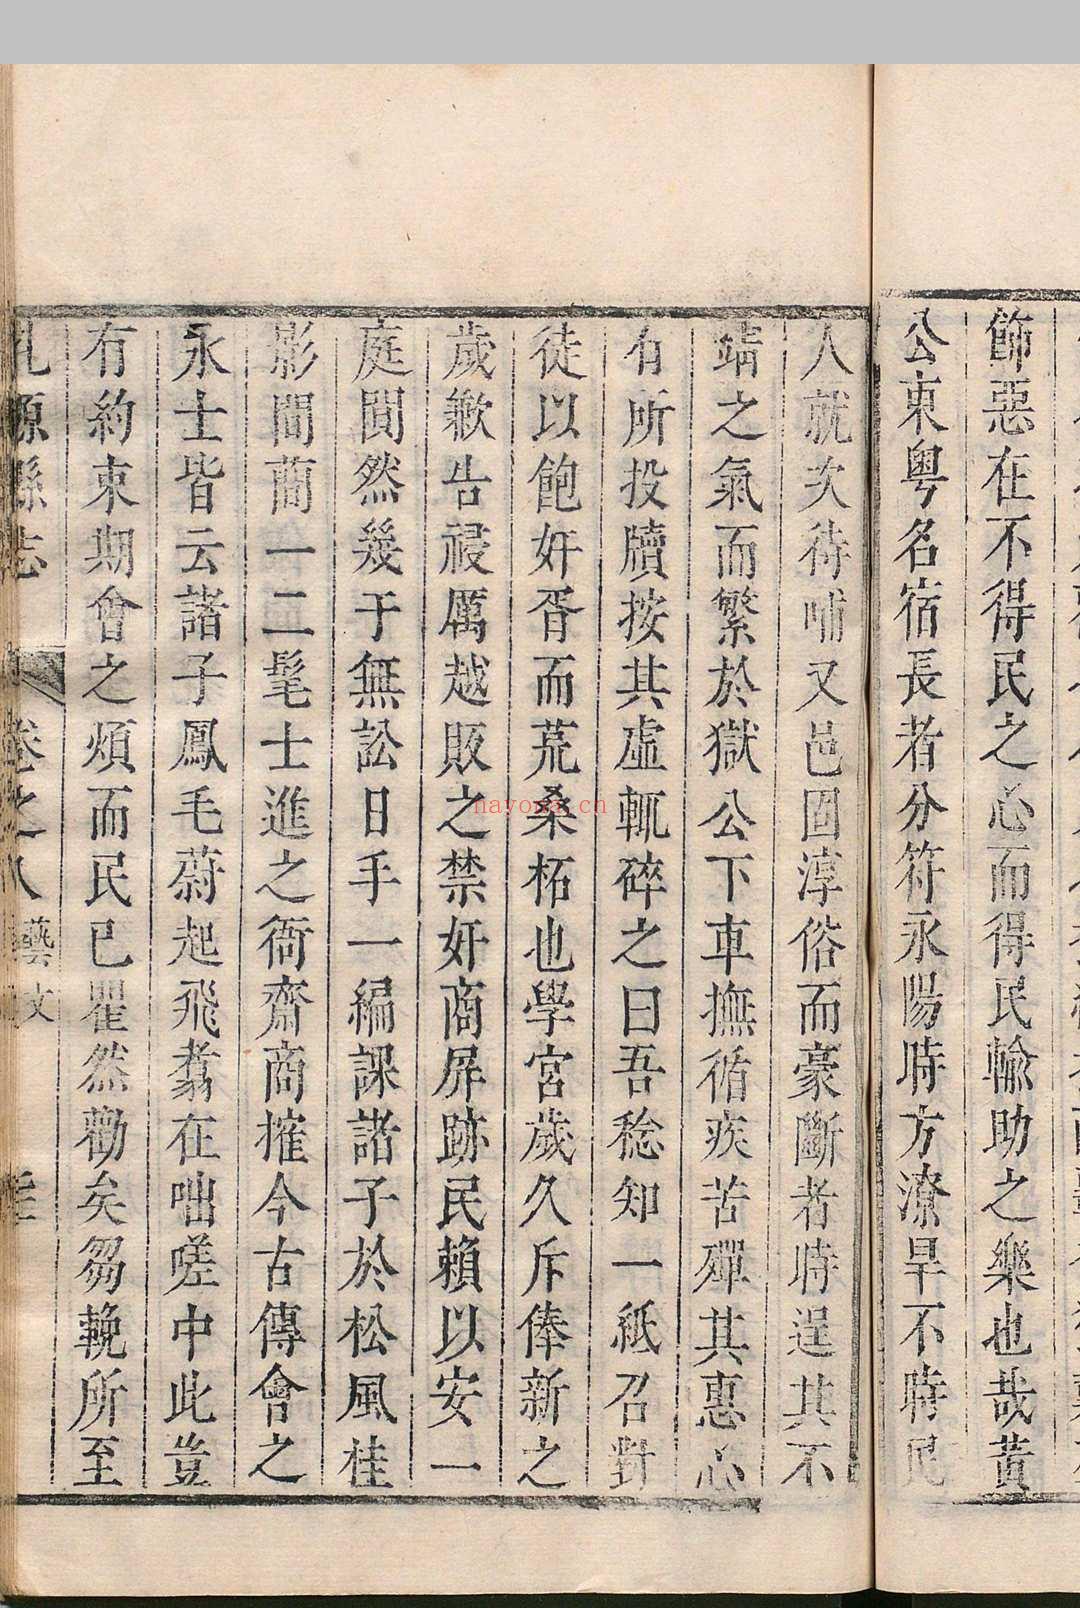 飾惡在不得民之心而得民輸助之樂也哉黃
公東粵名宿長者分符永陽時方潦旱不時民
人就次待哺又邑固淳俗而豪斷者時逞其不
靖之氣而繁於獄公下車撫循疾苦殫其惠心
有所投牘按其虛輒碎之曰吾稔知一紙召對
徒以飽奸胥而荒桑柘也學宮歲久斥俸新之
歲歉告祲厲越販之禁奸商屏跡民賴以安一
庭閴然幾于無訟日手一編課諸子於松風桂
影間蕳一二髦士進之衙齋商搉今古傳會之
永士皆云諸子鳳毛蔚起飛翥在咄嗟中此豈
有約束期會之煩而民已瞿然勸矣芻輓所至
乳源縣志 卷之八 藝文
nayona.cn